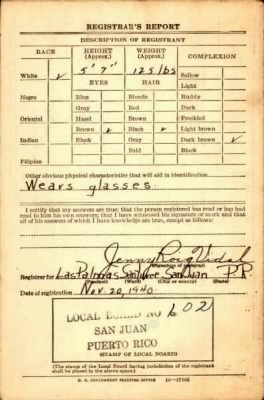 REGISTRAR'S REPORT
DESCRIPTION OF REGISTRANT
RACE HEIGHT (Approx.) WEIGHT (Approx.) COMPLEXION
White ✓ 5' 7" 125 lbs Sallow
EYES HAIR Light
Negro Blue Blonde Ruddy
Gray Red Dark
Oriental Hazel Brown Freckled
Brown ✓ Black ✓ Light brown
Indian Black Gray Dark brown ✓
Bald Black
Filipino
Other obvious physical characteristics that will aid in identification
Wears glasses.
I certify that my answers are true; that the person registered has read or has had
read to him his own answers; that I have witnessed his signature or mark and that
all of his answers of which I have knowledge are true, except as follows:
(Signature of registrar)
Registrar for Las Palmas San Juan P.R.
(Precinct) (Ward) (City or county) (State)
Date of registration Nov. 20, 1940.
LOCAL BOARD NO 602
SAN JUAN
PUERTO RICO
(STAMP OF LOCAL BOARD)
(The stamp of the Local Board having jurisdiction of the registrant
shall be placed in the above space.)
U. S. GOVERNMENT PRINTING OFFICE